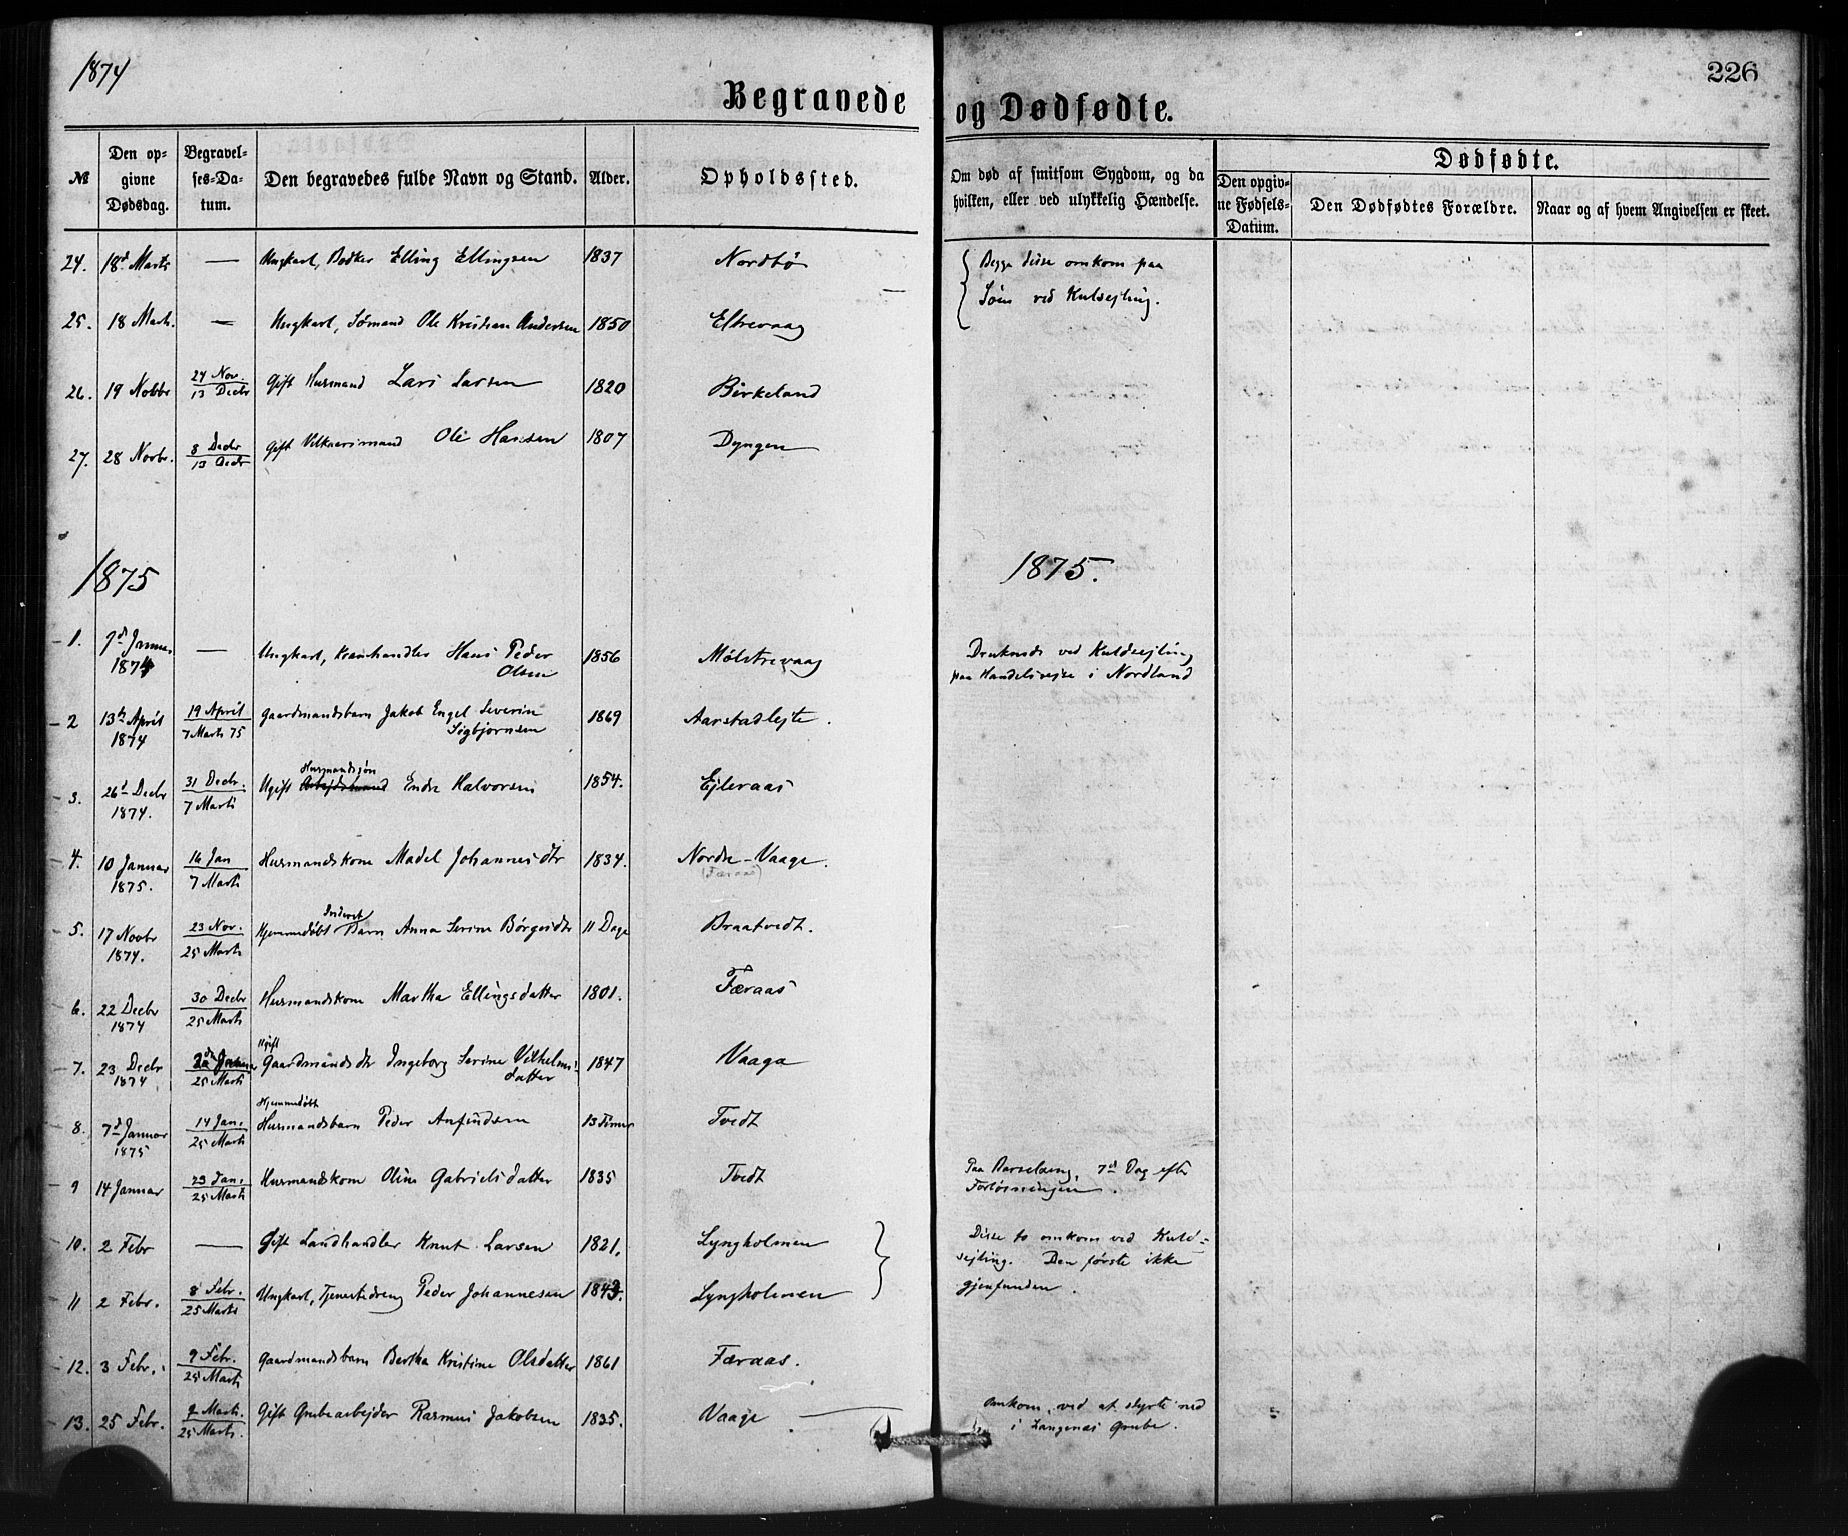 1874
226
Begravede og Dødfødte.
№
Den op-
givne
Dødsdag.
Begravel-
ses-Da-
tum.
Den begravedes fulde Navn og Stand.
Alder.
Opholdssted.
Om død af smitsom Sygdom, og da
hvilken, eller ved ulykkelig Hændelse.
Dødfødte.
Den opgiv-
ne Fødsels-
Datum.
Den Dødfødtes Forældre.
Naar og af hvem Angivelsen er skeet.
24. 18d Marts — Ungkarl, Bødker Elling Ellingsen 1837 Nordbø — Begge disse omkom paa
Søen ved Kulsejling.
25. 18 Marts. — Ungkarl, Sømand Ole Kristian Andersen 1850 Eltrevaag
26. 19 Novbr 24 Nov. / 13 Decbr Gift Husmand Lars Larsen 1820 Birkeland
27. 28 Novbr. 8 Decbr / 13 Decbr Gift Vilkaarsmand Ole Hansen 1807 Dyngen
1875 1875.
1. 7d Januar 1874 — Ungkarl, Kramhandler Hans Peder Olsen 1856 Mølstrevaag Druknede ved Kuldsejling
paa Handelsrejse i Nordland
2 13de April 1874 19 April / 7 Marts 75 Gaardmandsbarn Jakob Engel Severin Sigbjørnsen 1869 Aarstadlejte.
3. 26d Decbr 1874. 31 Decbr. / 7 Marts Ugift Husmandssøn Endre Halvorsen 1854. Ejleraas
4. 10 Januar 1875. 16 Jan / 7 Marts Husmandskone Madel Johannesdtr 1834. Nordre-Vaage.
(Færaas)
5. 17 Novbr 1874. 23 Nov. / 25 Marts Hjemmedøbt Inderst Barn Anna Serine Børgesdtr 11 Dage Braatvedt.
6. 22 Decbr 1874 30 Decbr / 25 Marts Husmandskone Martha Ellingsdatter 1801. Færaas
7. 23 Decbr 1874 Januar / 25 Marts Ugift Gaardmandsdtr Ingeborg Serine Vilhelms-
datter 1847 Vaaga
8. 7d Januar 1875 14 Jan. / 25 Marts Hjemmedøbt Husmandsbarn Peder Anfindsen 13 Timer Tvedt
9 14 Januar 23 Jan. / 25 Marts Husmandskone Oline Gabrielsdatter 1835 Tvedt Paa Barselseng, 7d Dag efter
Forløsningen.
10. 2 Febr — Gift Landhandler Knut Larsen 1821. Lyngholmen Disse to omkom ved Kuld-
sejling. Den første ikke
gjenfunden.
11 2 Febr. 8 Febr. / 25 Marts Ungkarl, Tjenestedreng Peder Johannesen 1843. Lyngholmen
12. 3 Febr. 9 Febr. / 25 Marts Gaardmandsbarn Bertha Kristine Olsdatter 1861 Færaas.
13. 25 Febr. 2 Marts. / 25 Marts. Gift Grubearbejder Rasmus Jakobsen 1835. Vaage — Omkom ved at styrte ned
i Langenes Grube.